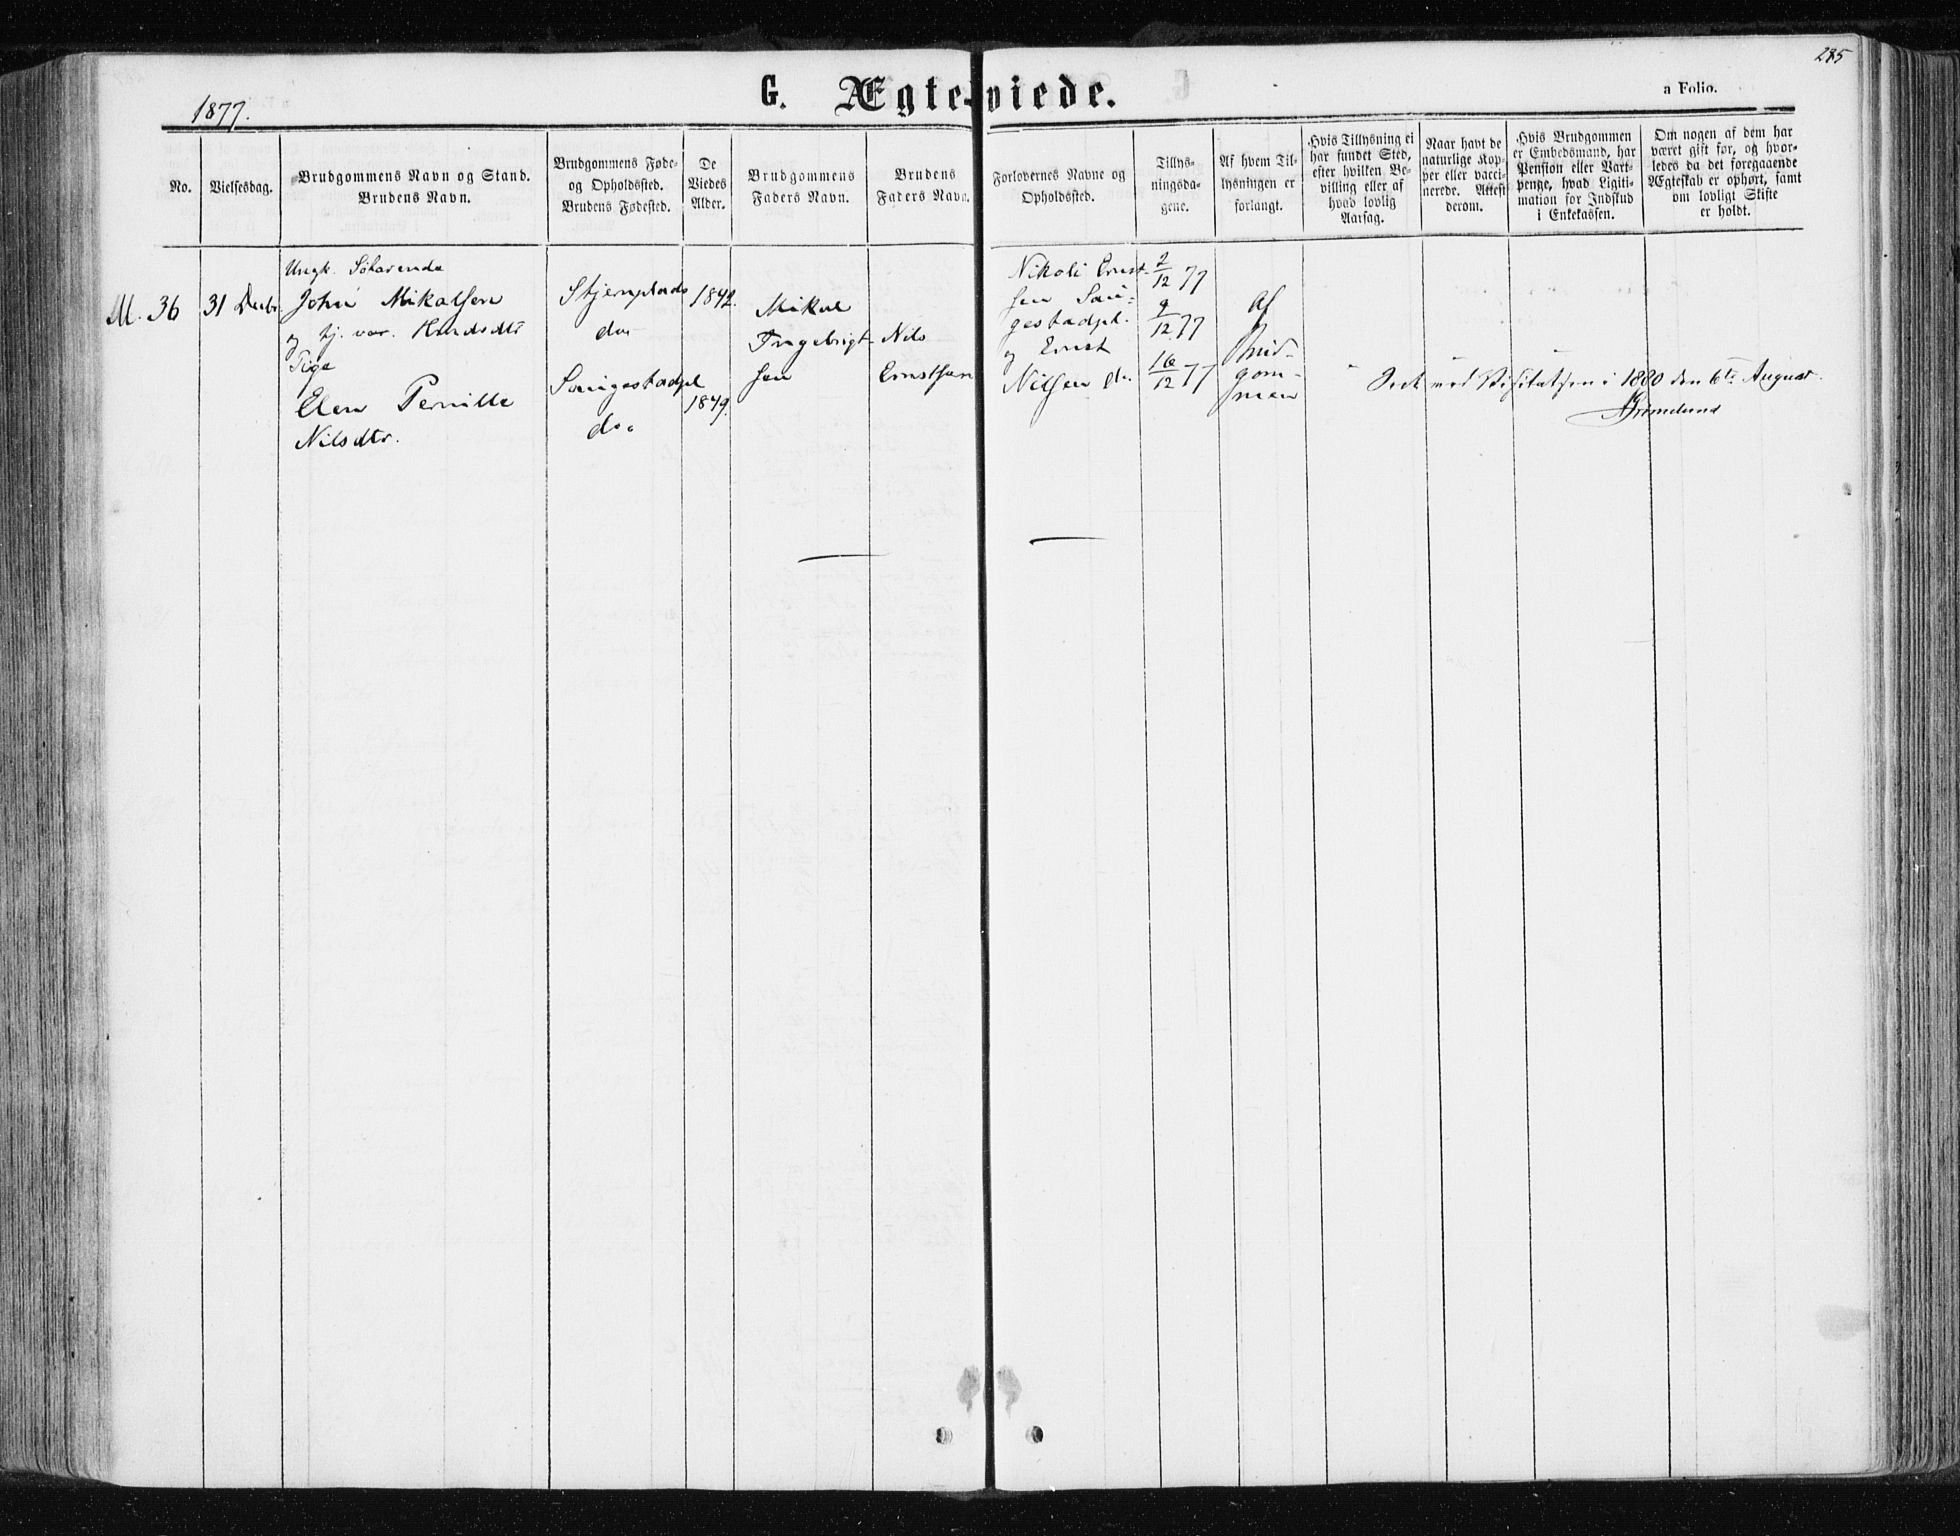 285
1877.
G. Ægte-viede.
a Folio.
No.
Vielsesdag.
Brudgommens Navn og Stand.
Brudens Navn.
Brudgommens Føde-
og Opholdssted.
Brudens Fødested.
De
Viedes
Alder.
Brudgommens
Faders Navn.
Brudens
Faders Navn.
Forlovernes Navne og
Opholdssted.
Tillys-
ningsda-
gene.
Af hvem Til-
lysningen er
forlangt.
Hvis Tillysning ei
har fundet Sted,
efter hvilken Be-
villing eller af
hvad lovlig
Aarsag.
Naar havt de
naturlige Kop-
per eller vacci-
nerede. Attest
derom.
Hvis Brudgommen
er Embedsmand, har
Pension eller Vart-
penge, hvad Ligiti-
mation for Indskud
i Enkekassen.
Om nogen af dem har
været gift før, og hvor-
ledes da det foregaaende
Ægteskab er ophørt, samt
om lovligt Skifte
er holdt.
M. 36
31 Decbr.
Ungk.
John Mikalsen
og tj. var.
Pige
Elen Pernille
Nilsdtr.
do
do.
1842.
1849.
Mikal
Ingebrigt-
sen
Nils
Ernstsen
Nikoli Ernst-
sen
og Ernst
Nilsen do.
2/12 77
9/12 77
16/12 77
Af
Brud-
gom-
men
Seet ved Visitatsen i 1880 den 6te August.
Grimelund